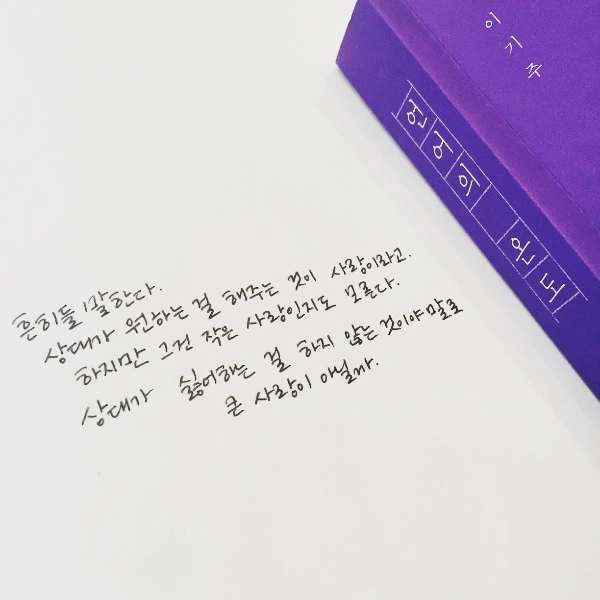 이기주
언어의 온도
흔히들 말한다.
상대가 원하는 걸 해주는 것이 사랑이라고.
하지만 그건 작은 사랑인지도 모른다.
상대가 싫어하는 걸 하지 않는 것이야말로
큰 사랑이 아닐까.